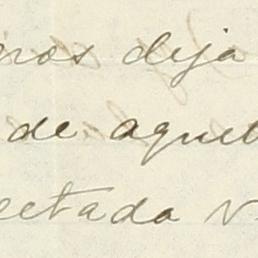 nos deja
de aquel
ectada V.